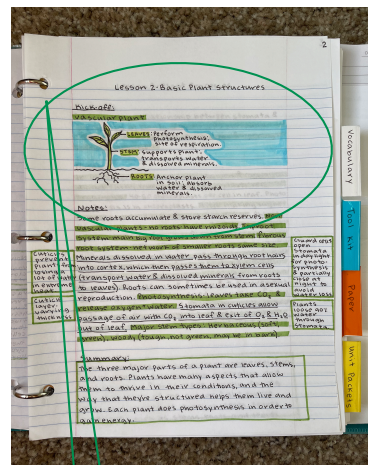 2
Lesson 2-Basic Plant Structures
Kick-off:
Vascular plant
LEAVES: Perform
photosynthesis;
site of respiration.
STEM: Supports plant;
transports water
& dissolved minerals.
ROOTS: Anchor plant
in soil; absorb
water & dissolved
minerals.
Notes:
Some roots accumulate & store starch reserves. Non
vascular plants: no roots have rhizoids. Taproot
system: main root grown down from stem. Fibrous
root system: net work of smaller roots near surface
Minerals dissolved in water pass through root hairs
into cortex, which then passes them to xylem cells
(transport water & dissolved minerals from roots
to leaves). Roots can sometimes be used in asexual
reproduction. Photosynthesis: leaves take CO2 &
release O2 in water. Stomata in cuticles allow
passage of air with CO2 into leaf & exit of O2 & H2O
out of leaf. Major stem types: herbaceous (soft,
green), woody (tough, not green, may be in bark)
Cuticle
prevent
plant
losing a
lot of water
in extreme
heat
Cuticle
layer
varying
thickness.
Guard cells
open
stomata
in daylight
for photo-
synthesis
& partially
close at
night to
avoid
water loss
Plants
loose 90%
water
through
stomata
Summary:
The three major parts of a plant are leaves, stems,
and roots. Plants have many aspects that allow
them to thrive in their conditions, and the
way that they're structured helps them live and
grow. Each plant does photosynthesis in order to
gain energy.
Vocabulary
Tool Kit
Paper
Unit Packets